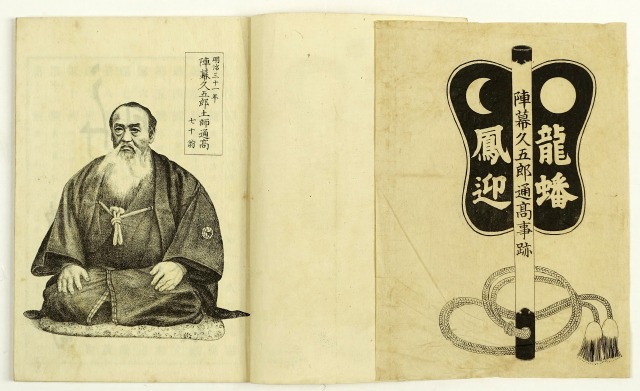 龍蟠
陣幕久五郎通高事跡
鳳迎
明治三十一年
陣幕久五郎土師通高
七十翁